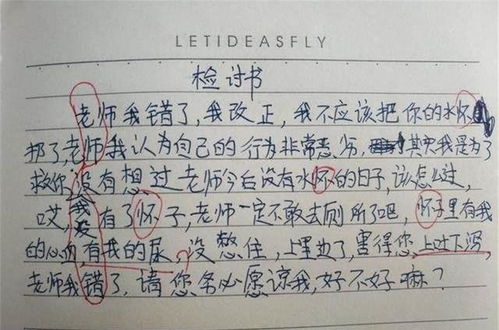 LETIDEASFLY
检讨书
老师我错了,我改正,我不应该把你的水怀
扔了,老师我认为自己的行为非常恶劣,其实我是为了
救你,没有想过老师今后没有水怀的日子,该怎么过,
哎,我没有了怀子,老师一定不敢去厕所了吧,怀子里有我
的心血,有我的尿,没憋住,上里边了,害得您上过下泻,
老师我错了,请您务必愿谅我,好不好嘛?